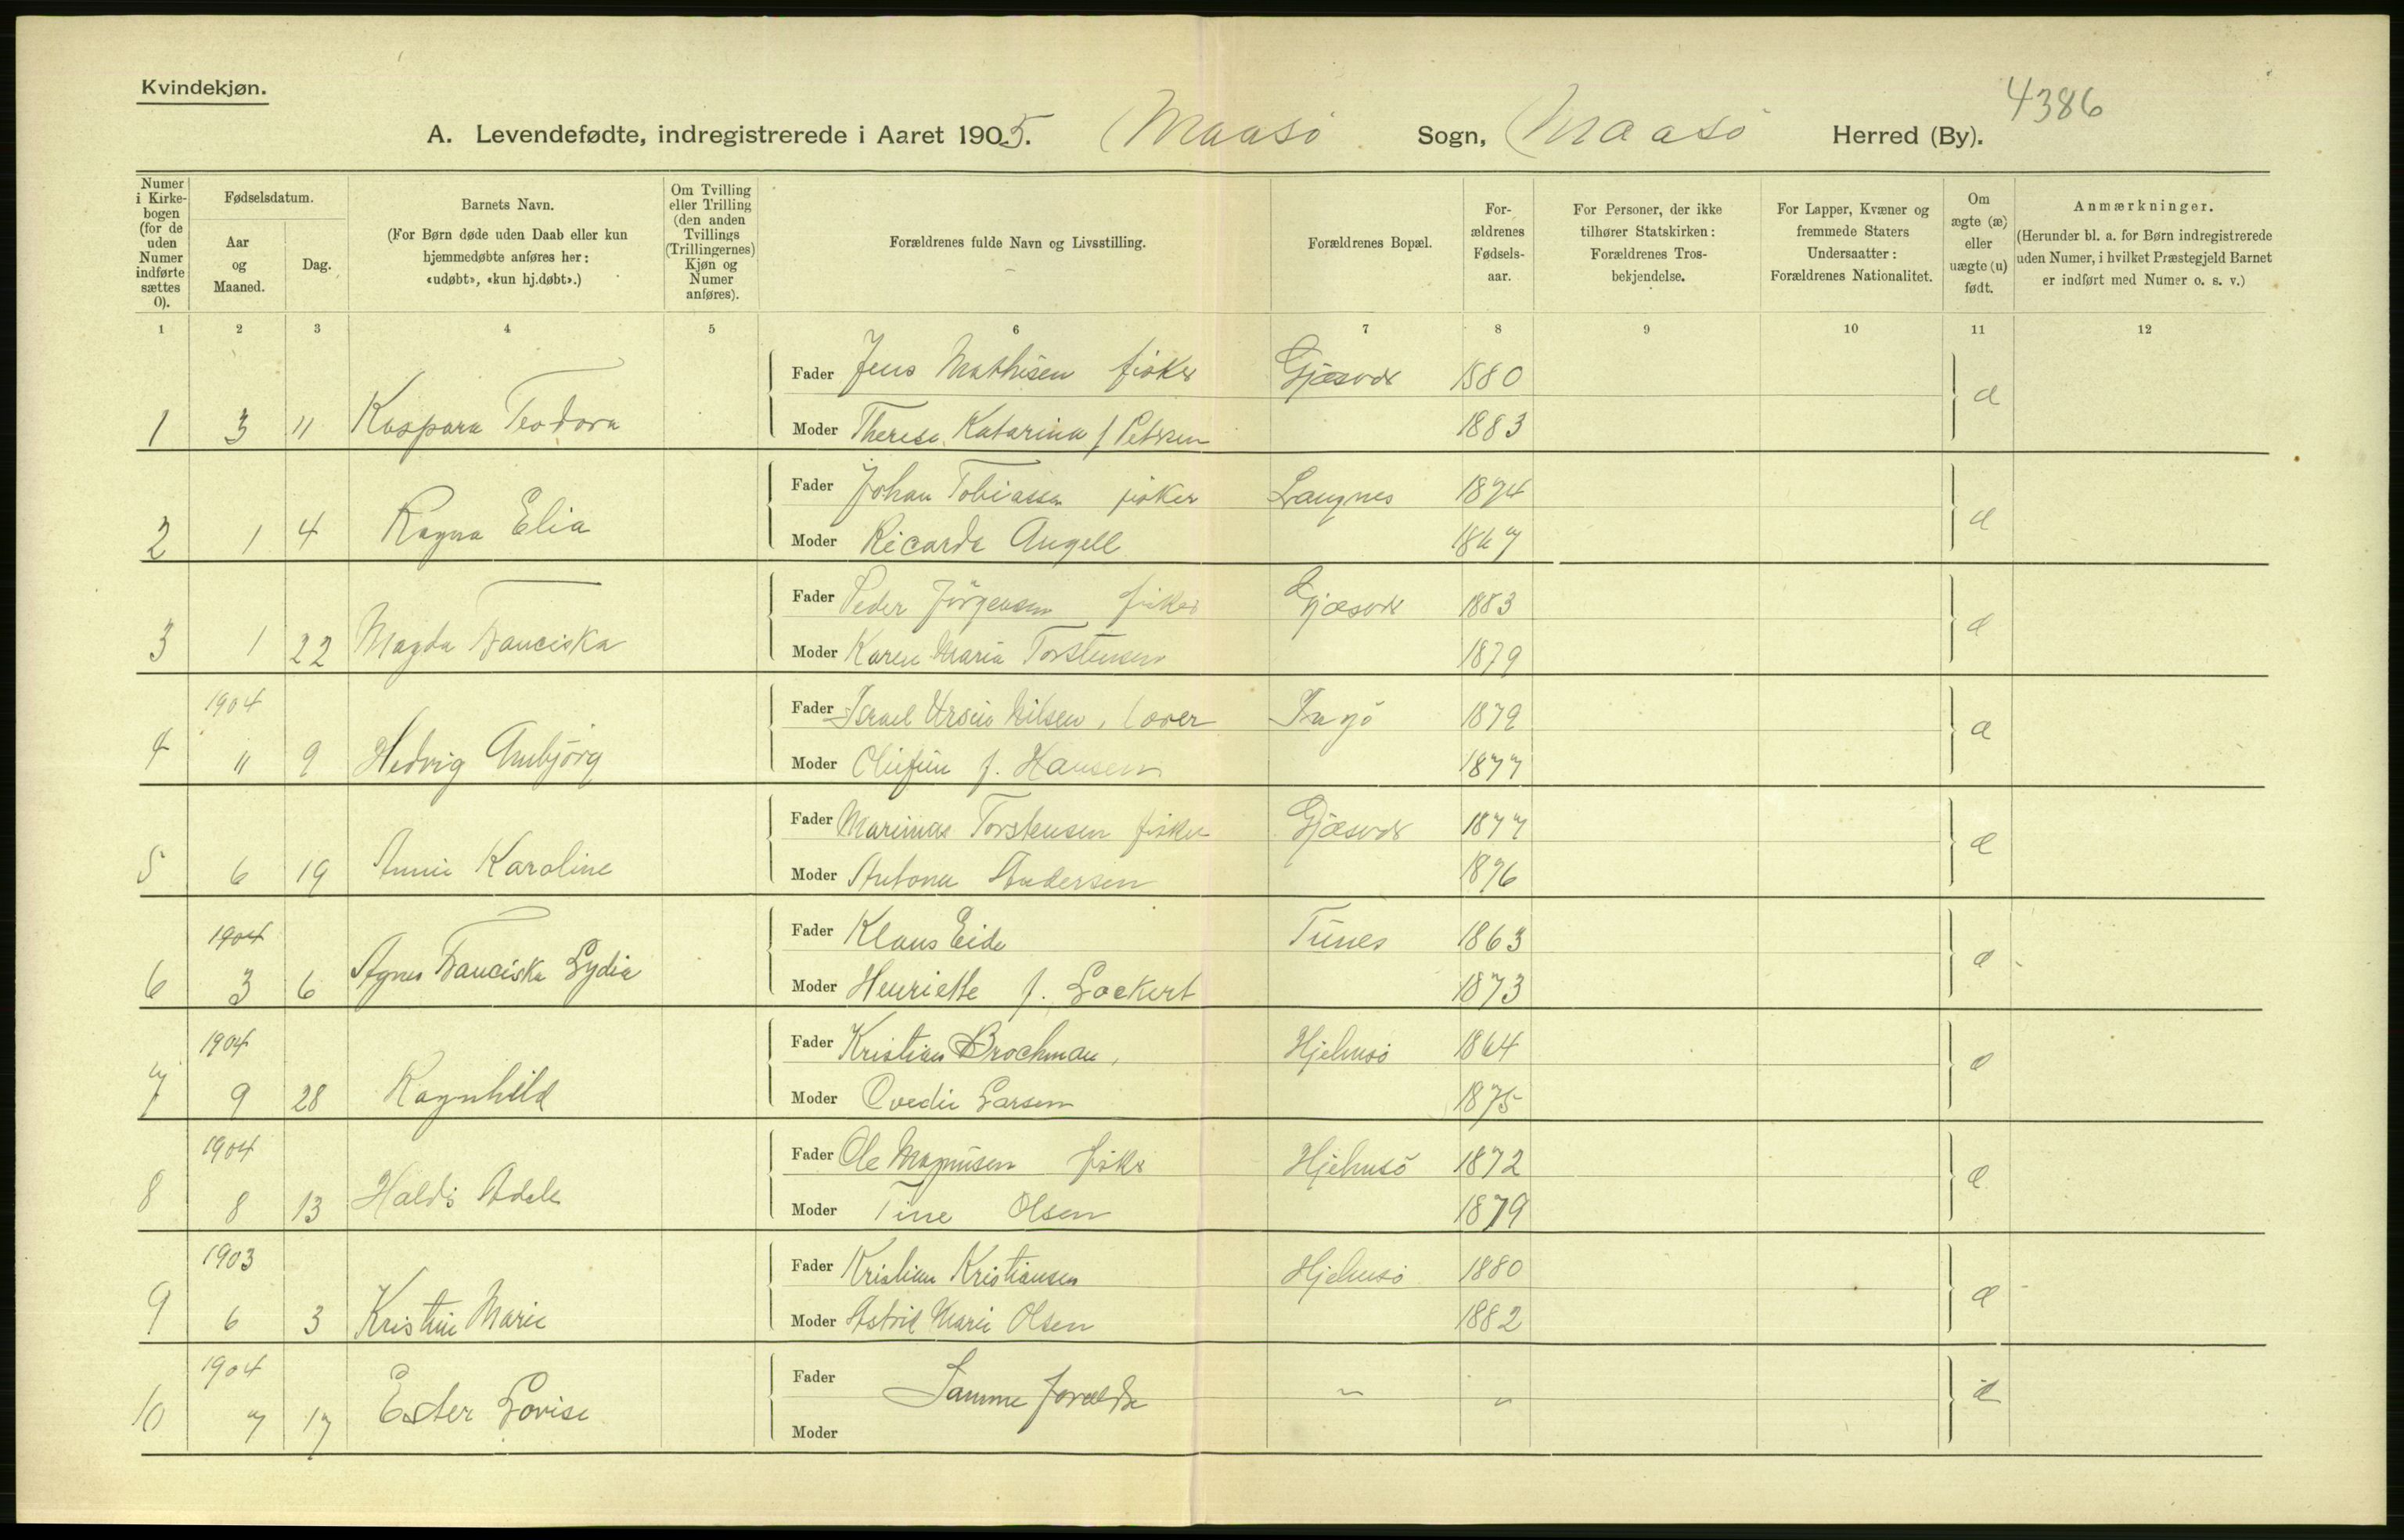 Kvindekjøn.
4386
A. Levendefødte, indregistrerede i Aaret 1905. Maasö Sogn, Maasö Herred (By).
Numer i Kirkebogen (for de uden Numer indførte sættes 0).
Fødselsdatum.
Aar og Maaned.
Dag.
Barnets Navn.
(For Børn døde uden Daab eller kun hjemmedøbte anføres her: «udøbt», «kun hj.døbt».)
Om Tvilling eller Trilling (den anden Tvillings (Trillingernes) Kjøn og Numer anføres).
Forældrenes fulde Navn og Livsstilling.
Forældrenes Bopæl.
Forældrenes Fødselsaar.
For Personer, der ikke tilhører Statskirken: Forældrenes Trosbekjendelse.
For Lapper, Kvæner og fremmede Staters Undersaatter: Forældrenes Nationalitet.
Om ægte (æ) eller uægte (u) født.
Anmærkninger.
(Herunder bl. a. for Børn indregistrerede uden Numer, i hvilket Præstegjeld Barnet er indført med Numer o. s. v.)
1 2 3 4 5 6 7 8 9 10 11 12
Fader Jens Mathisen fisker Gjæsvær 1880
1 3 11 Kaspara Teodora Moder Therese Katarina f Petersen 1883 æ
Fader Johan Tobiassen fisker Langnes 1874
2 1 4 Ragna Elia Moder Ricarda Angell 1867 æ
Fader Peder Jörgensen fisker Gjæsvær 1883
3 1 22 Magda Franciska Moder Karen Maria Torstensen 1879 æ
1904 Fader Israel Ursin Nilsen, Ingö 1879
4 11 9 Hedvig Annbjörg Moder f. Hansen 1877 æ
Fader Marinus Torstensen fisker Gjæsvær 1877
5 6 19 Annie Karoline Moder Antona Andersen 1876 æ
1904 Fader Klaus Eide Tunes 1863
6 3 6 Agnes Franciska Lydia Moder Henriette f. Lockert 1873 æ
1904 Fader Kristian Brochman, Hjelmsö 1864
7 9 28 Ragnhild Moder Ovedie Larsen 1875 æ
1904 Fader Ole Magnusen fisker Hjelmsö 1872
8 8 13 Haldis Adele Moder Tine Olsen 1879 æ
1903 Fader Kristian Kristiansen Hjelmsö 1880
9 6 3 Kristine Marie Moder Astrid Marie Olsen 1882 æ
1904 Fader Samme forældre
10 7 17 Ester Lovise Moder æ